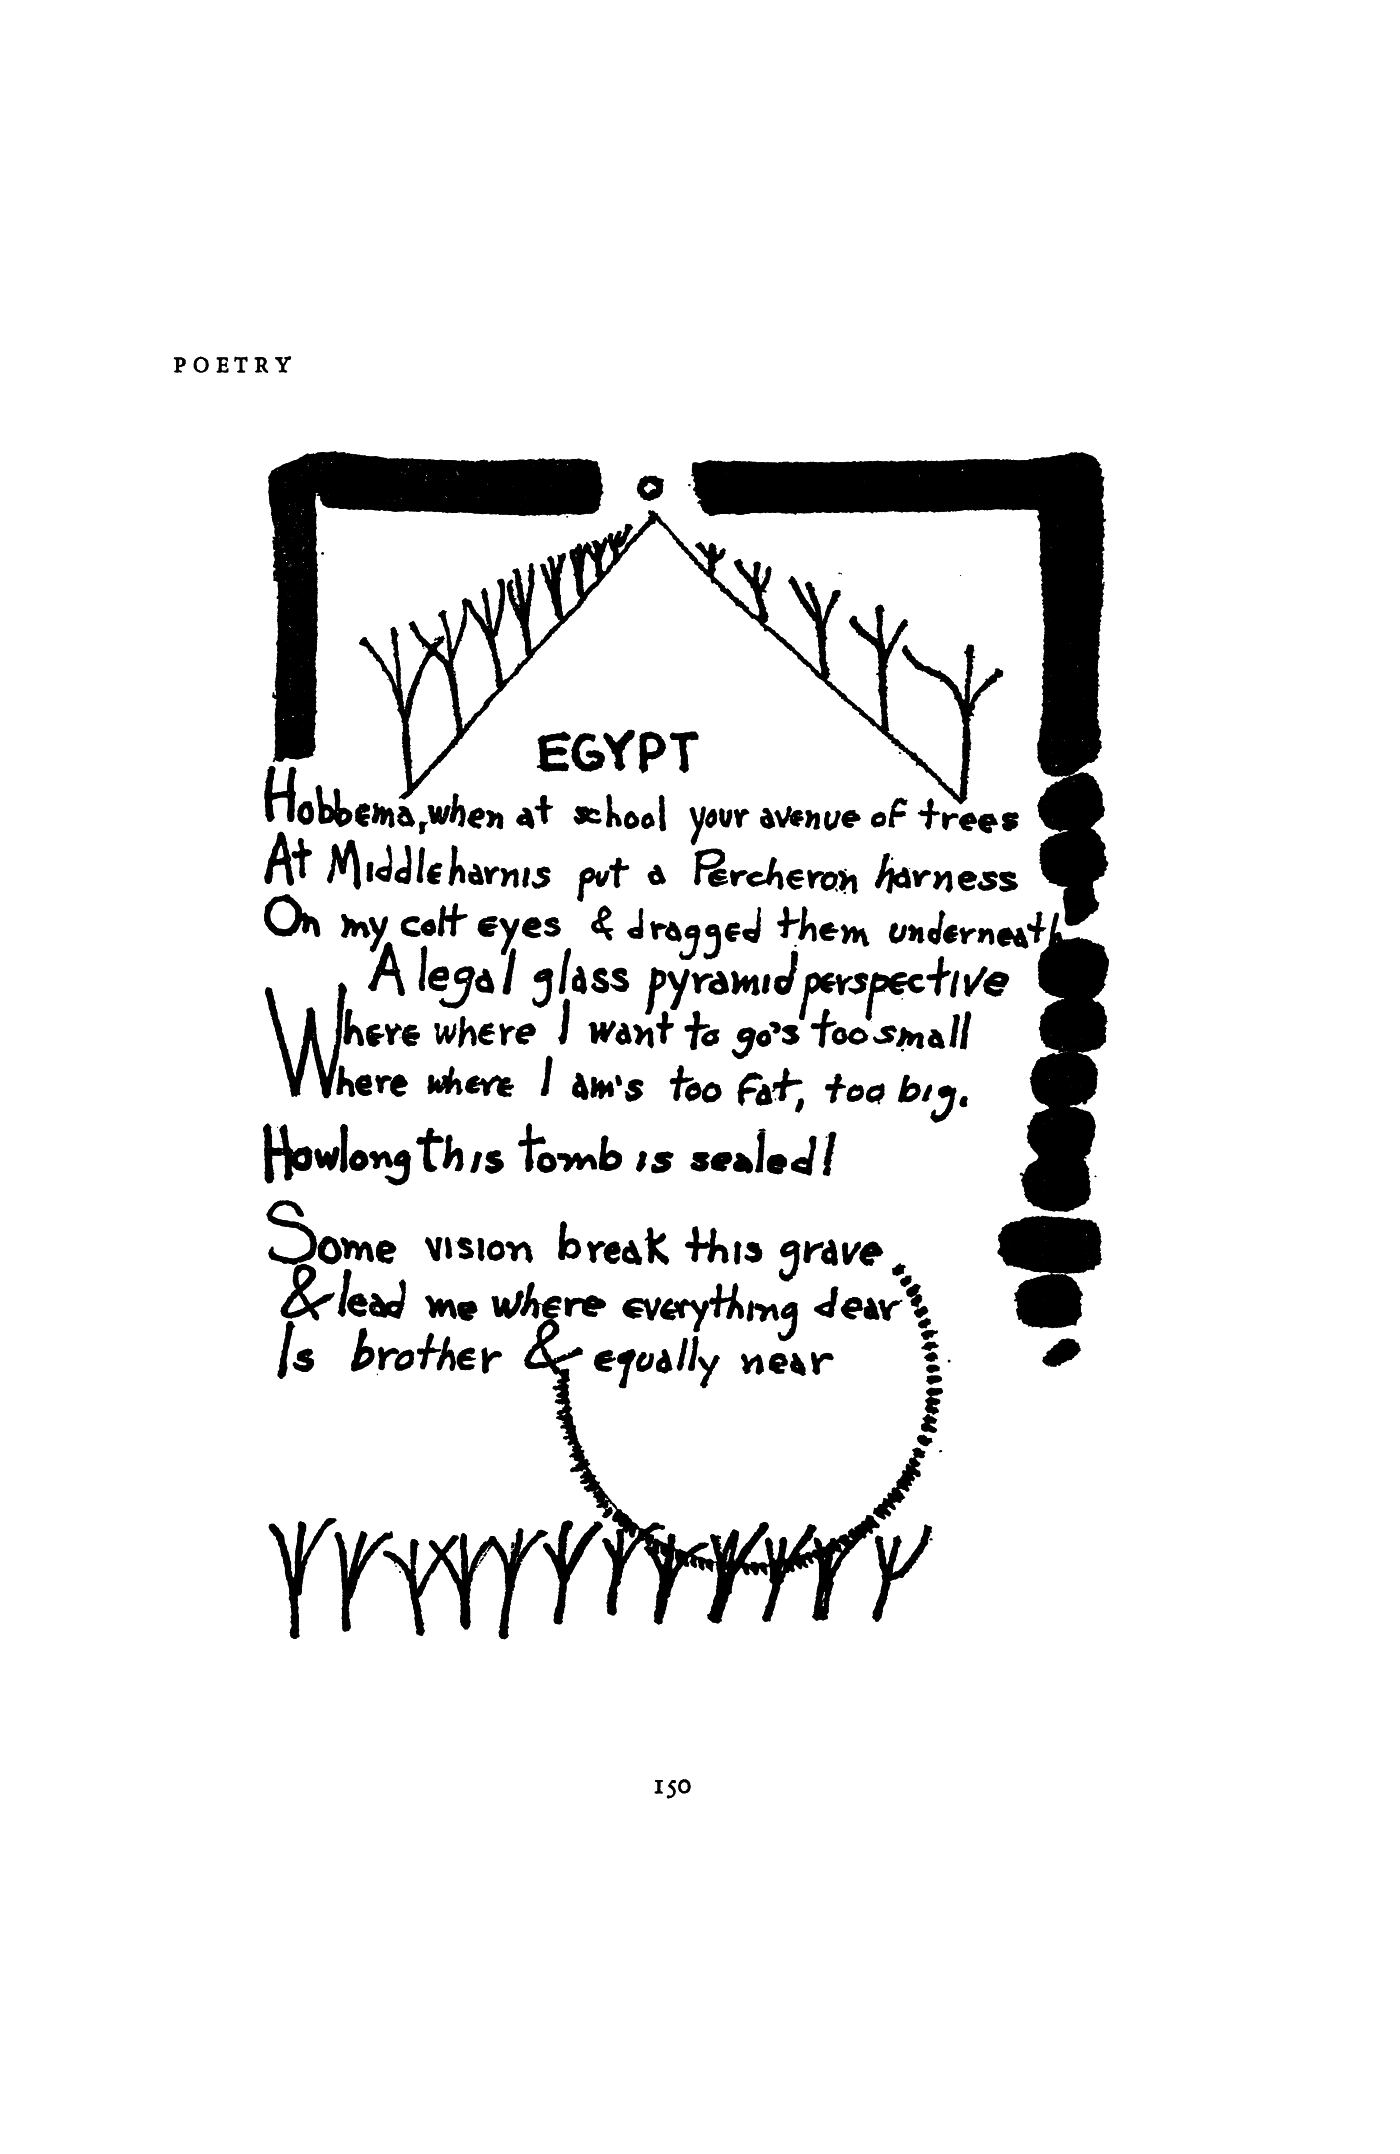 POETRY
EGYPT
Hobbema, when at school your avenue of trees
At Middleharnis put a Percheron harness
On my colt eyes & dragged them underneath
A legal glass pyramid perspective
Where where I want to go's too small
Where where I am's too fat, too big.
How long this tomb is sealed!
Some vision break this grave
& lead me where everything dear
Is brother & equally near
150